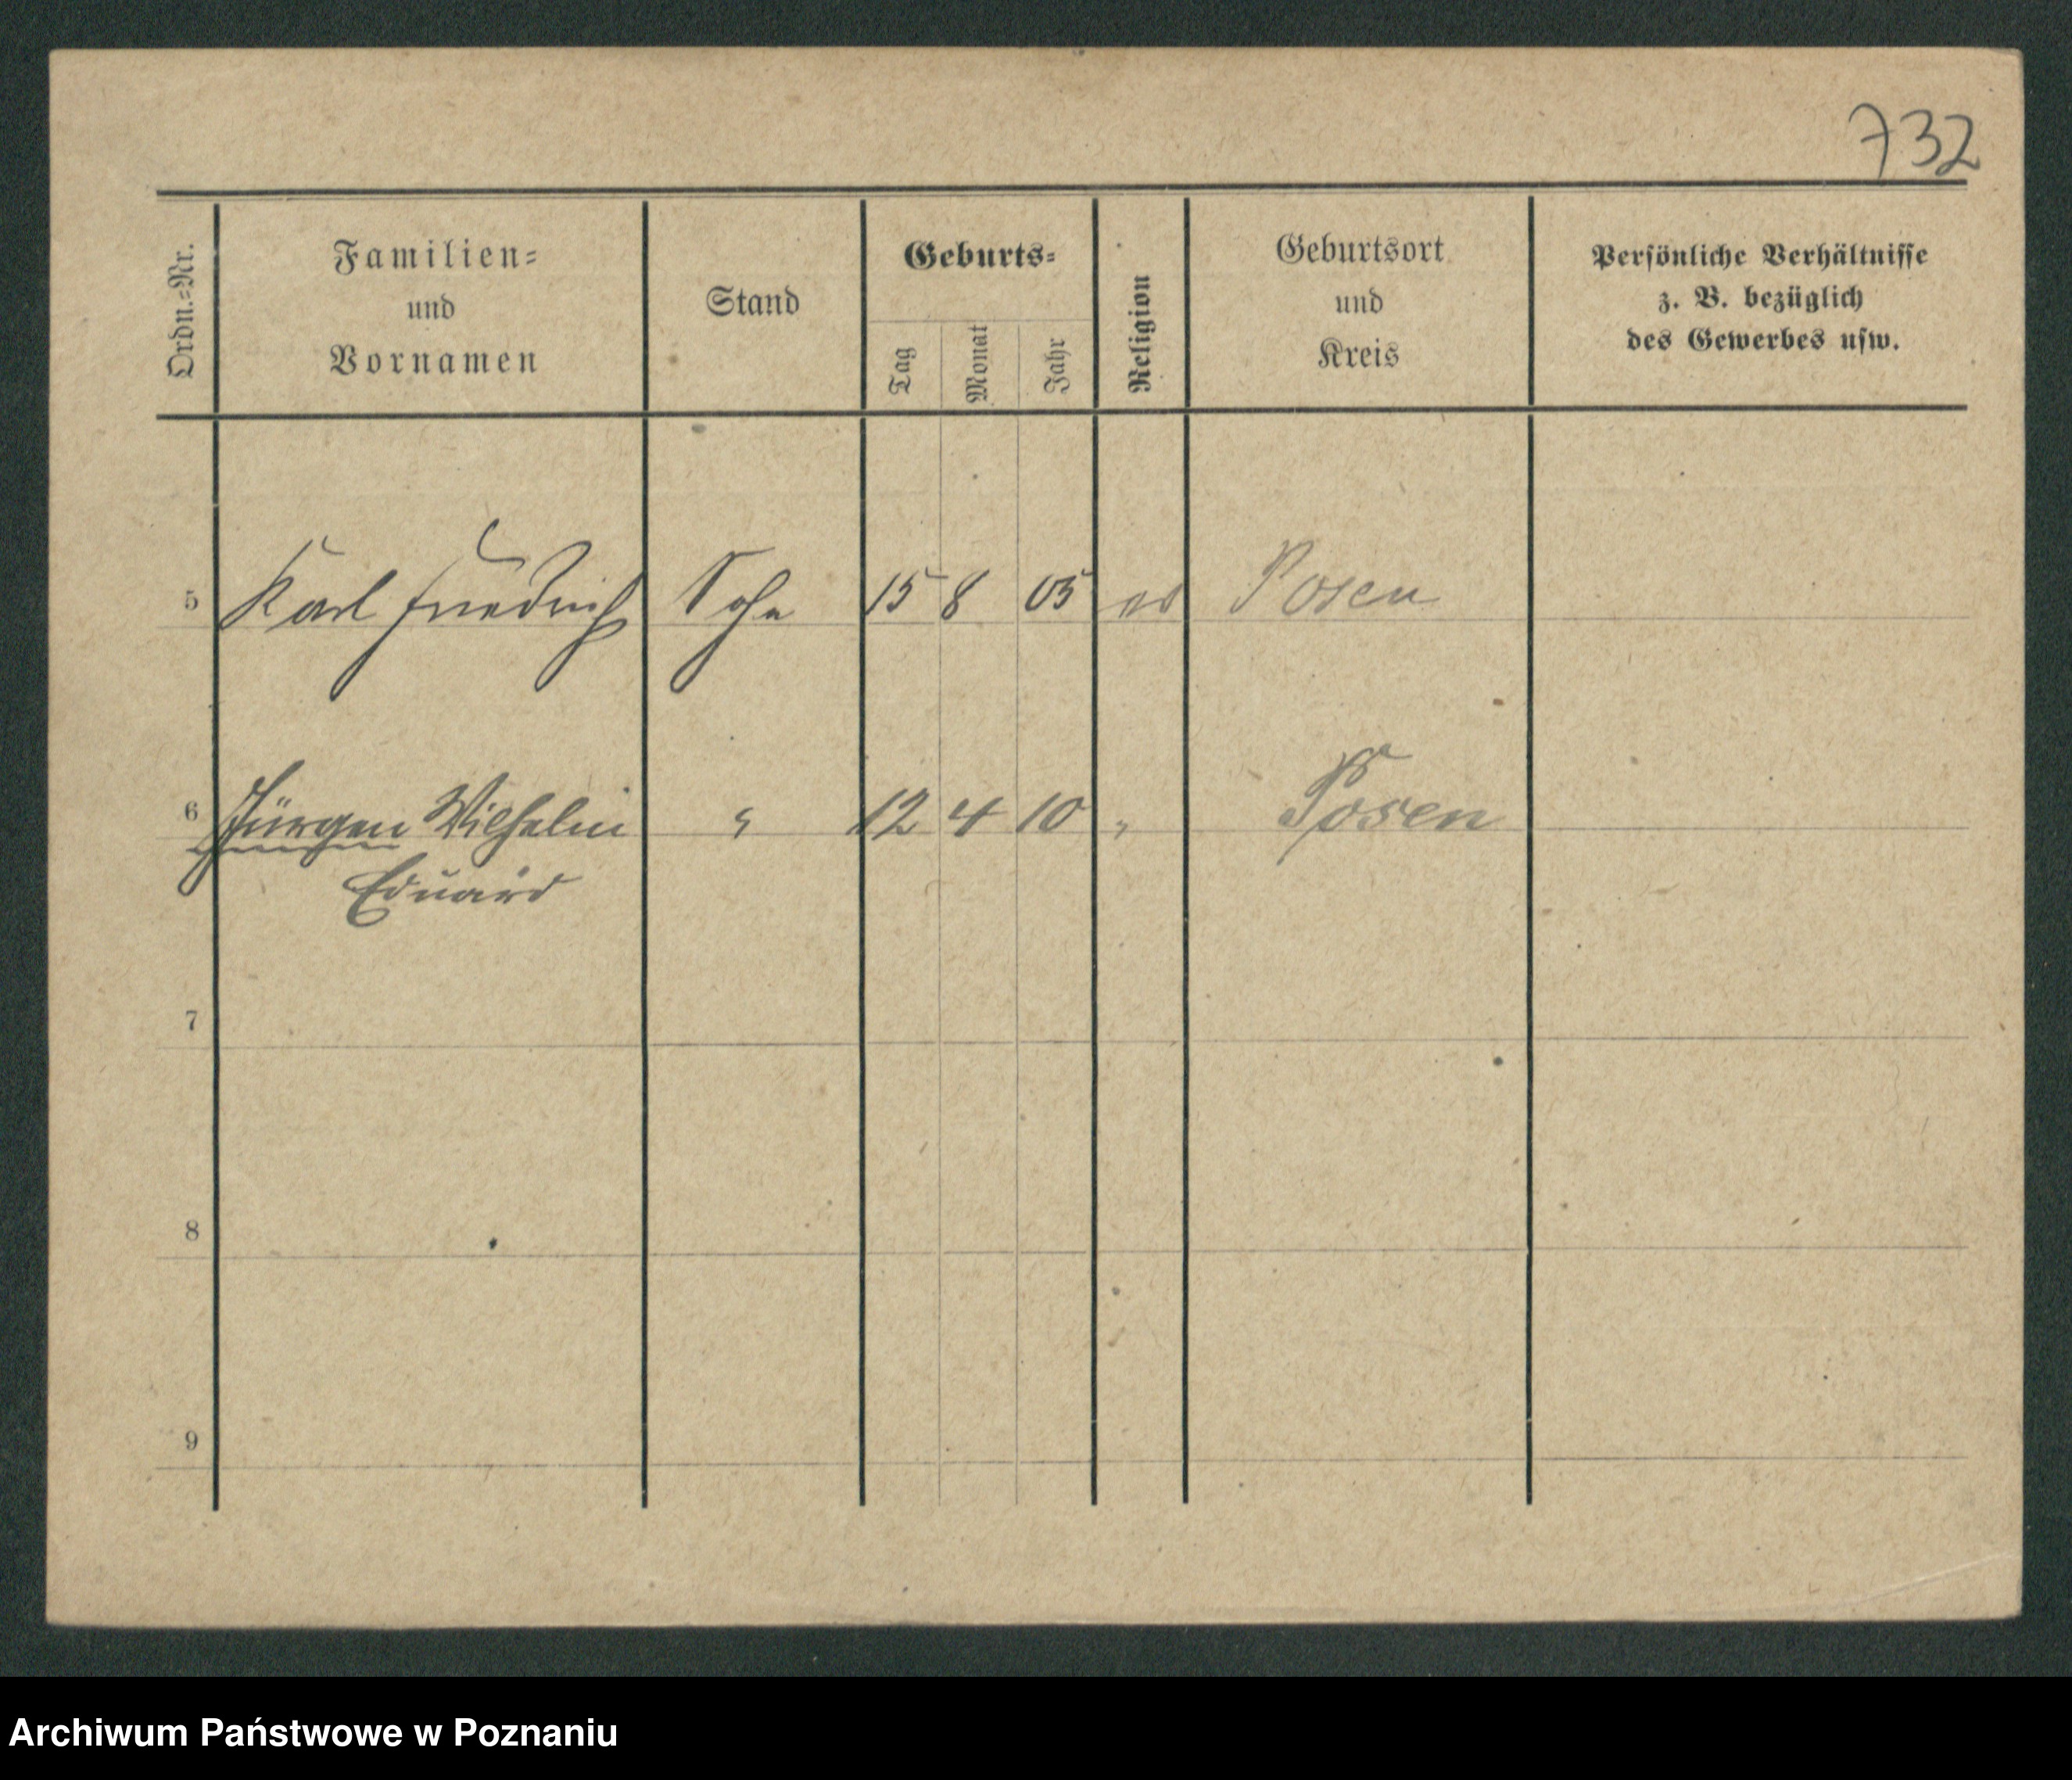 732
Ordn.-Nr.
Familien-
und
Vornamen
Stand
Geburts-
Tag
Monat
Jahr
Religion
Geburtsort
und
Kreis
Persönliche Verhältnisse
z. B. bezüglich
des Gewerbes usw.
5 Karl Friedrich Sohn 15 8 05 ev Posen
6 Jürgen Wilhelm " 12 4 10 " Posen
Eduard
7
8
9
Archiwum Państwowe w Poznaniu